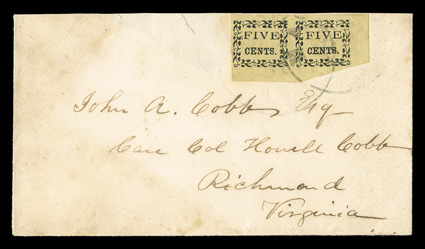 FIVE CENTS.
FIVE CENTS.
John A. Cobb, Esq
Care Col Howell Cobb
Richmond
Virginia